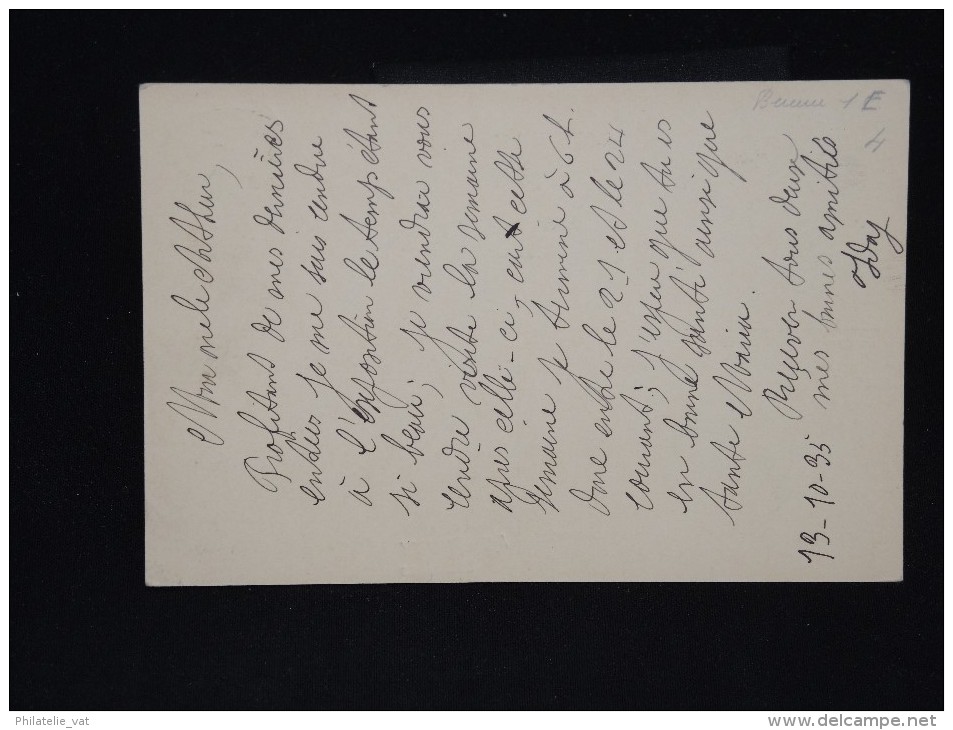 Mon cher
Profitant de mes dernières
entrées je me suis rendue
à l'exposition le temps étant
si beau, je viendrai vous
rendre visite la semaine
après celle-ci, car cette
semaine je termine à 6 h.
donc entre le 21 et le 24
courant, j'espère que tu es
en bonne santé ainsi que
tante Maria.
Recevez tous deux
mes bonnes amitiés
13-10-35
E
4
Philatelie_vat
www.delcampe.net